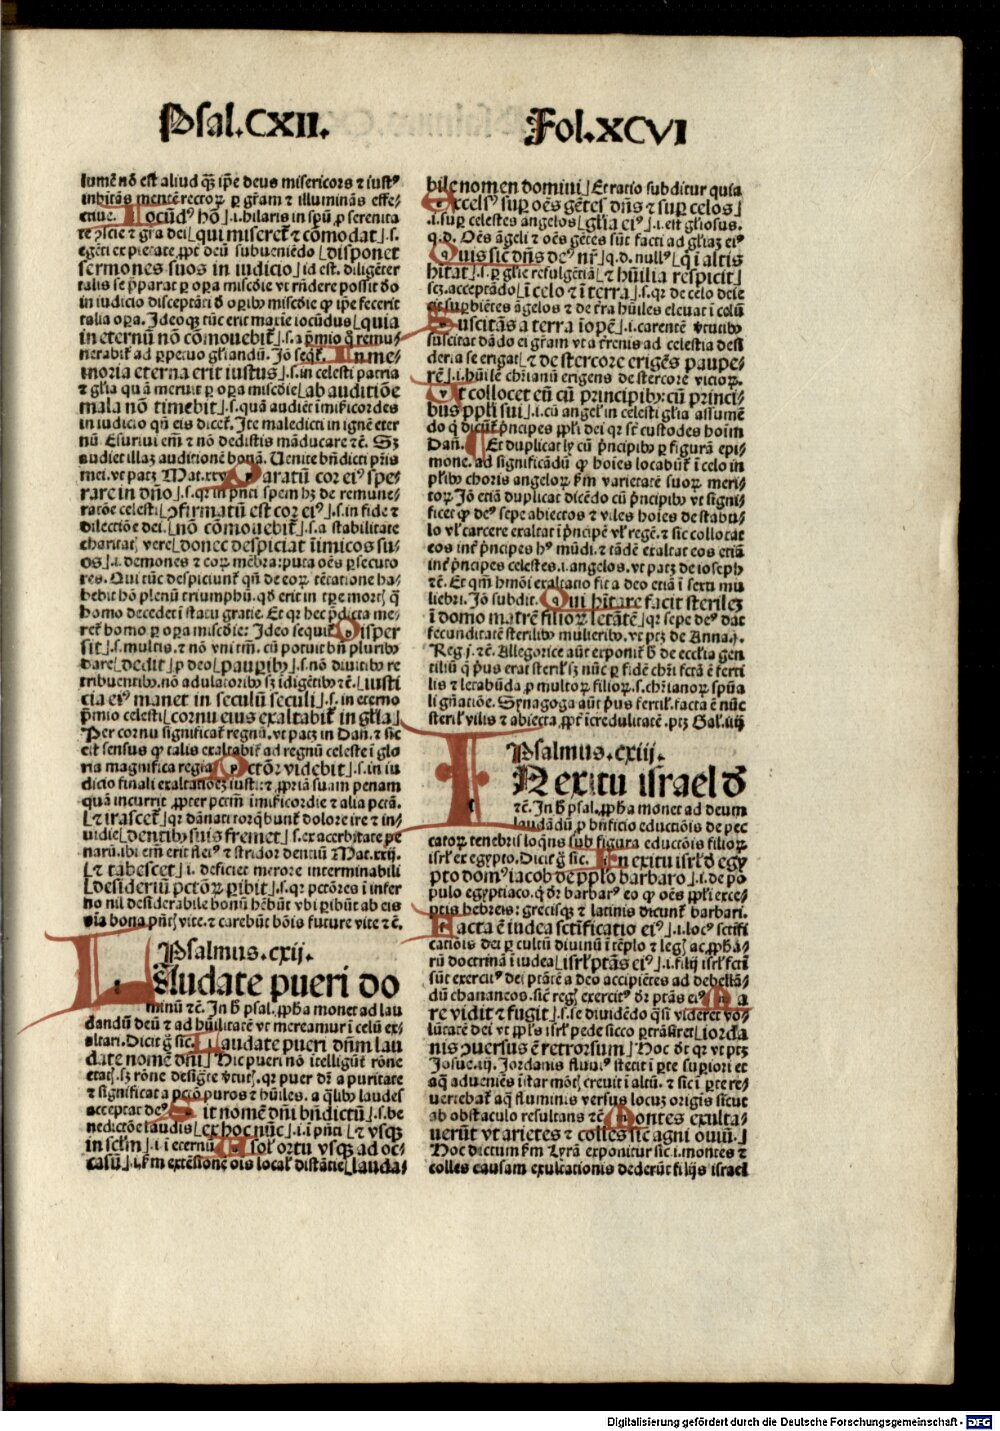 Psal.CXII.
Fol.XCVI
lumē nō est aliud qȝ ip̄e deus misericors ⁊ iustꝰ
inhītās mentē rectoꝝ ꝑ gr̄am ⁊ illuminās effe-
ctiue. Iocūdꝰ hō ⌋.i.hilaris in spū ꝓ serenita
te ꝯscīe ⁊ gr̄a dei⌊qui miseret̄ ⁊ cōmodat⌋.s.
egēti ex pietate ꝓpt̄ deū subueniēdo⌊disponet
sermones suos in iudicio⌋id est. diligēter
talis se p̄parat ꝑ oꝑa miscd̄ie vt rn̄dere possit d̄o
in iudicio disceptāti d̄ oꝑibꝰ miscd̄ie ꝙ ip̄e fecerit
talia oꝑa. Ideoqȝ tūc erit maxīe iocūdus⌊quia
in eternū nō cōmouebit̄⌋.s.a p̄mio q̄ remu-
nerabit̄ ad ꝑpetuo gl̄iandū. Iō seqt̄. In me-
moria eterna erit iustus⌋.s.in celesti patria
⁊ gl̄ia quā meruit ꝑ oꝑa miscd̄ie⌊ab auditiōe
mala nō timebit⌋.s.quā audiēt īmīcordes
in iudicio qn̄ eis dicet̄. Ite maledicti in ignē eter
nū. Esuriui em̄ ⁊ nō dedistis māducare ⁊c̄. Sȝ
audiet illaȝ auditionē bonā. Uenite bn̄dicti pr̄is
mei. vt patȝ Mat.xxv Paratū cor eiꝰ spe-
rare in dn̄o⌋.s.qr in p̄nti spem hȝ de remune-
ratōe celesti⌊ꝯfirmatū est cor eiꝰ⌋.s.in fide ⁊
dilectiōe dei.⌊nō cōmouebit̄⌋.s.a stabilitate
charitatꝭ vere⌊donec despiciat īimicos su-
os⌋.i.demones ⁊ eoꝝ mēbra: puta oēs ꝑsecuto
res. Qui tūc despiciunt̄ qn̄ de eoꝝ tētatione ha-
bebit hō plenū triumphū. qd̄ erit in tꝑe mortꝭ q̄
homo decedet ī statu gratie. Et qr hec p̄dicta me-
ret̄ homo ꝑ oꝑa miscd̄ie: Ideo sequit̄ Disper
sit⌋.s.multis. ⁊ nō vni tm̄. cū potuit bn̄ pluribꝰ
dare⌊dedit⌋ꝓ deo⌊pauꝑibꝰ⌋.s.nō diuitibꝰ re
tribuentibꝰ. nō adulatoribꝰ sȝ īdigētibꝰ ⁊c̄.⌊iusti
cia eiꝰ manet in seculū seculi⌋.s.in eterno
p̄mio celesti⌊cornu eius exaltabit̄ in gl̄ia⌋
Per cornu significat̄ regnū. vt patȝ in Dan̄. ⁊ sic
erit sensus ꝙ talis exaltabit̄ ad regnū celeste ī glo
ria magnifica regia Pctōr videbit⌋.s.in iu
dicio finali exaltatioeȝ iusti: ⁊ ꝓpriā suam penam
quā incurrit ꝓpter pctm̄ īmīcordie ⁊ alia pctā.
⌊⁊ irascet̄⌋qr dānati torqbunt̄ dolore ire ⁊ in-
uidie⌊dentibꝰ suis fremet⌋.s.ex acerbitate pe
naꝝ. ibi em̄ erit fletꝰ ⁊ stridor dentiū Mat.xxij.
⌊⁊ tabescet⌋.i. deficiet merore interminabili
⌊desideriū pctōꝝ ꝑibit⌋.s.qr pctōres ī infer
no nil desiderabile bonū hēbūt vbi ꝑibūt ab eis
oīa bona pn̄tꝭ vite. ⁊ carebūt bōis future vite ⁊c̄.
Psalmus.cxij.
LAudate pueri do
minū ⁊c̄. In h̄ psal. ꝓph̄a monet ad lau
dandū deū ⁊ ad hūilitatē vt mereamur ī celū ex-
altari. Dicit g̊ sic. Laudate pueri dn̄m lau
date nomē dn̄i⌋Hic pueri nō ītelligūt̄ rōne
etatꝭ. sȝ rōne desigt̄e v̄tutꝭ. qr puer dr̄ a puritate
⁊ significat a pctō puros ⁊ hūiles. a qͥbꝰ laudes
acceptat deꝰ Sit nomē dn̄i bn̄dictū⌋.s.be
nedictōe laudis⌊ex hoc nūc⌋.i.ī pn̄ti⌊⁊ vsqȝ
in sclm̄⌋.i.ī eternū A sol̄ ortu vsqȝ ad oc-
casū⌋.i.fm̄ extēsionē oīs local̄ distātie⌊lauda-
bile nomen domini⌋Et ratio subditur quia
Excelsꝰ suꝑ oēs gētes dn̄s ⁊ suꝑ celos⌋
.i.suꝑ celestes angelos⌊gl̄ia eiꝰ⌋.i.eīt gl̄iosus.
q.d. Oēs āgeli ⁊ oēs gētes sūt facti ad gl̄iaȝ eiꝰ
Quis sic̄ dn̄s deꝰ nr̄⌋q.d. nullꝰ⌊q̄ ī altis
hītat⌋.s.ꝑ gl̄ie refulgētiā⌊⁊ hūilia respicit⌋
scȝ.acceptādo⌊ī celo ⁊ ī terra⌋.s.qr de celo deie
cit suꝑbiētes āgelos ⁊ de tr̄a hūiles eleuat ī celū
Suscitās a terra īopē⌋.i.carentē v̄tutibꝰ
suscitat dādo ei gr̄am vt a tr̄enis ad celestia desi
deria se erigat⌊⁊ de stercore erigēs paupe-
rē⌋.i.hūilē chr̄ianū erigens de stercore vicioꝝ.
Ut collocet eū cū principibꝰ: cū princi-
bus ppl̄i sui⌋.i.cū angel̄ in celesti gl̄ia assumē
do q̄ dicūt̄ p̄ncipes ppl̄i dei qr st̄ custodes hoīm
Dan̄. Et duplicat ly cū p̄ncipibꝰ ꝑ figurā epi-
mone. ad significādū ꝙ hoīes locabūt̄ ī celo in
pl̄ibꝰ choris angeloꝝ fm̄ varietatē suoꝝ meri-
toꝝ Iō etiā duplicat dicēdo cū p̄ncipibꝰ vt signi-
ficet ꝙ deꝰ sepe abiectos ⁊ viles hoīes de stabu-
lo vl̄ carcere exaltat ī p̄ncipē vl̄ regē. ⁊ sic collocat
eos int̄ p̄ncipes hꝰ mūdi. ⁊ tādē exaltat eos etiā
int̄ p̄ncipes celestes.i.angelos. vt patȝ de ioseph
⁊c̄. Et qm̄ hmōi exaltatio fit a deo etiā ī sexu mu
liebri. Iō subdit. Qui hītare facit sterileȝ
ī domo matrē filioꝝ letātē⌋qr sepe deꝰ dat
fecunditatē sterilibꝰ mulieribꝰ. vt ptȝ de Anna.j.
Reg.j.⁊c̄. Allegorice aūt exponit̄ h̄ de ecclīa gen
tiliū q̄ p̄us erat steril̄ sȝ nūc ꝑ fidē chr̄i fctā ē ferti
lis ⁊ letabūda ꝓ multoꝝ filioꝝ.s.chr̄ianoꝝ spūa
li gn̄atiōe. Synagoga aūt p̄us fertil̄. facta ē nūc
steril̄ vilis ⁊ abiecta ꝓpt̄ īcredulitatē. ptȝ Gal̄.iiij
Psalmus.cxiij.
IN exitu isr̄ael d̄
⁊c̄. In h̄ psal. ꝓph̄a monet ad deum
laudādū ꝓ bn̄ficio eductiōis de pec
catoꝝ tenebris loqn̄s sub figura eductōis filioꝝ
isrl̄ ex egypto. Dicit g̊ sic. In exitu isrl̄ d̄ egy
pto domꝰ iacob de pplo barbaro⌋.i.de po
pulo egyptiaco. q̄ dr̄ barbarꝰ eo ꝙ oēs ppl̄i exce-
ptis hebreis: grecisqȝ ⁊ latinis dicunt̄ barbari.
Facta ē iudea sctīficatio eiꝰ⌋.i.locꝰ sctīfi
catiōis dei ꝑ cultū diuinū ī tēplo ⁊ legꝭ ac ꝓph̄a-
rū doctrinā ī iudea⌊isrl̄ ptās eiꝰ⌋.i.filij isrl̄ fctī
sūt exercitꝰ dei ptātē a deo accipiētes ad debellā-
dū chananeos. sic̄ regꝭ exercitꝰ dr̄ ptās eiꝰ Ma
re vidit ⁊ fugit⌋.s.se diuidēdo qsi videret vo-
lūtatē dei vt ppl̄s isrl̄ pede sicco ꝑtrāsiret⌊iorda
nis ꝯuersus ē retrorsum⌋Hoc d̄t qr vt ptȝ
Iosue.iij. Iordanis fluuiꝰ stetit ī ꝑte suꝑiori et
aqͣ adueniēs īstar mōtꝭ creuit ī altū. ⁊ sic ī ꝑte re-
uertebat̄ aqͣ fluminis versus locuȝ origīs sicut
ab obstaculo resultans ⁊c̄ Montes exulta-
uerūt vt arietes ⁊ colles sic̄ agni ouiū.⌋
Hoc dictum fm̄ Lyrā exponitur sic.i.montes ⁊
colles causam exultationis dederūt filijs israel
Digitalisierung gefördert durch die Deutsche Forschungsgemeinschaft - DFG